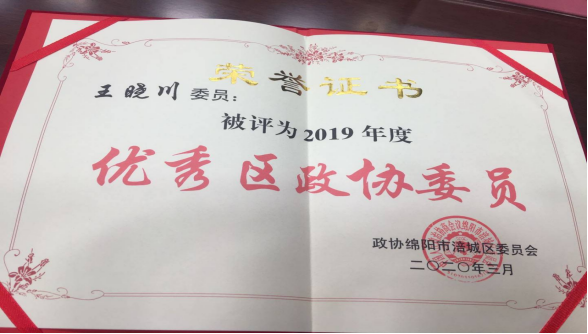 荣誉证书
王晓川委员：
被评为2019年度
优秀区政协委员
政协绵阳市涪城区委员会
二〇二〇年三月